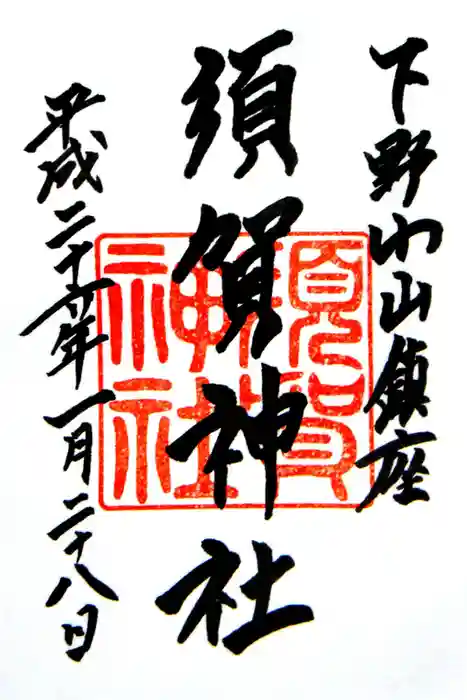 下野小山鎮座
須賀神社
平成二十年一月二十八日
須賀
神社